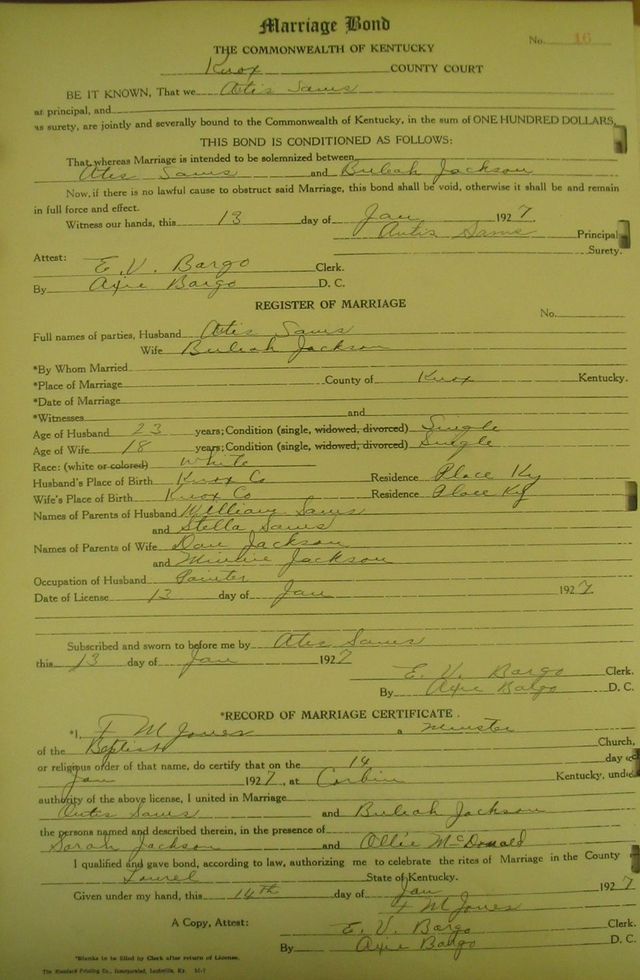 Marriage Bond
No. 16
THE COMMONWEALTH OF KENTUCKY
Knox COUNTY COURT
BE IT KNOWN, That we Artis Sams
as principal, and
as surety, are jointly and severally bound to the Commonwealth of Kentucky, in the sum of ONE HUNDRED DOLLARS,
THIS BOND IS CONDITIONED AS FOLLOWS:
That whereas Marriage is intended to be solemnized between
Atis Sams and Buleah Jackson
Now, if there is no lawful cause to obstruct said Marriage, this bond shall be void, otherwise it shall be and remain
in full force and effect.
Witness our hands, this 13 day of Jan 1927.
Autis Sams Principal
Surety.
Attest:
E. V. Bargo Clerk.
By Axie Bargo D. C.
REGISTER OF MARRIAGE
No.
Full names of parties, Husband Artis Sams
Wife Buleah Jackson
*By Whom Married
*Place of Marriage County of Knox Kentucky.
*Date of Marriage
*Witnesses and
Age of Husband 23 years; Condition (single, widowed, divorced) Single
Age of Wife 18 years; Condition (single, widowed, divorced) Single
Race: (white or colored) White
Husband's Place of Birth Knox Co Residence Place Ky
Wife's Place of Birth Knox Co Residence Place Ky
Names of Parents of Husband William Sams
and Stella Sams
Names of Parents of Wife Dan Jackson
and Minnie Jackson
Occupation of Husband Painter
Date of License 13 day of Jan 1927.
Subscribed and sworn to before me by Atis Sams
this 13 day of Jan 1927
E. V. Bargo Clerk.
By Axie Bargo D. C.
*RECORD OF MARRIAGE CERTIFICATE.
*I, F M Jones a Minster
of the Baptist Church,
or religious order of that name, do certify that on the 14 day o
Jan 1927, at Corbin Kentucky, unde
authority of the above license, I united in Marriage
Autis Sams and Buleah Jackson
the persons named and described therein, in the presence of
Sarah Jackson and Ollie McDonald
I qualified and gave bond, according to law, authorizing me to celebrate the rites of Marriage in the County
Laurel State of Kentucky.
Given under my hand, this 14th day of Jan 1927
F M Jones
A Copy, Attest: E. V. Bargo Clerk.
By Axie Bargo D. C.
*Blanks to be filled by Clerk after return of License.
The Standard Printing Co., Incorporated, Louisville, Ky.